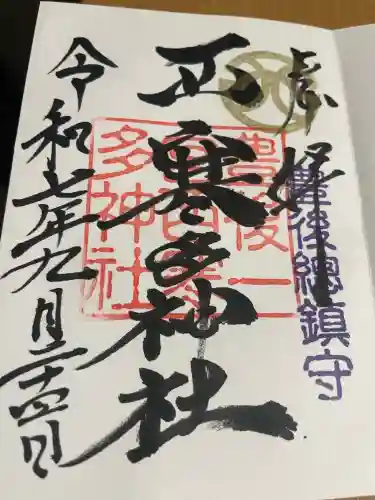 奉拝
豊後總鎮守
西寒多神社
豊後一
宮西寒
多神社
令和七年九月二十四日